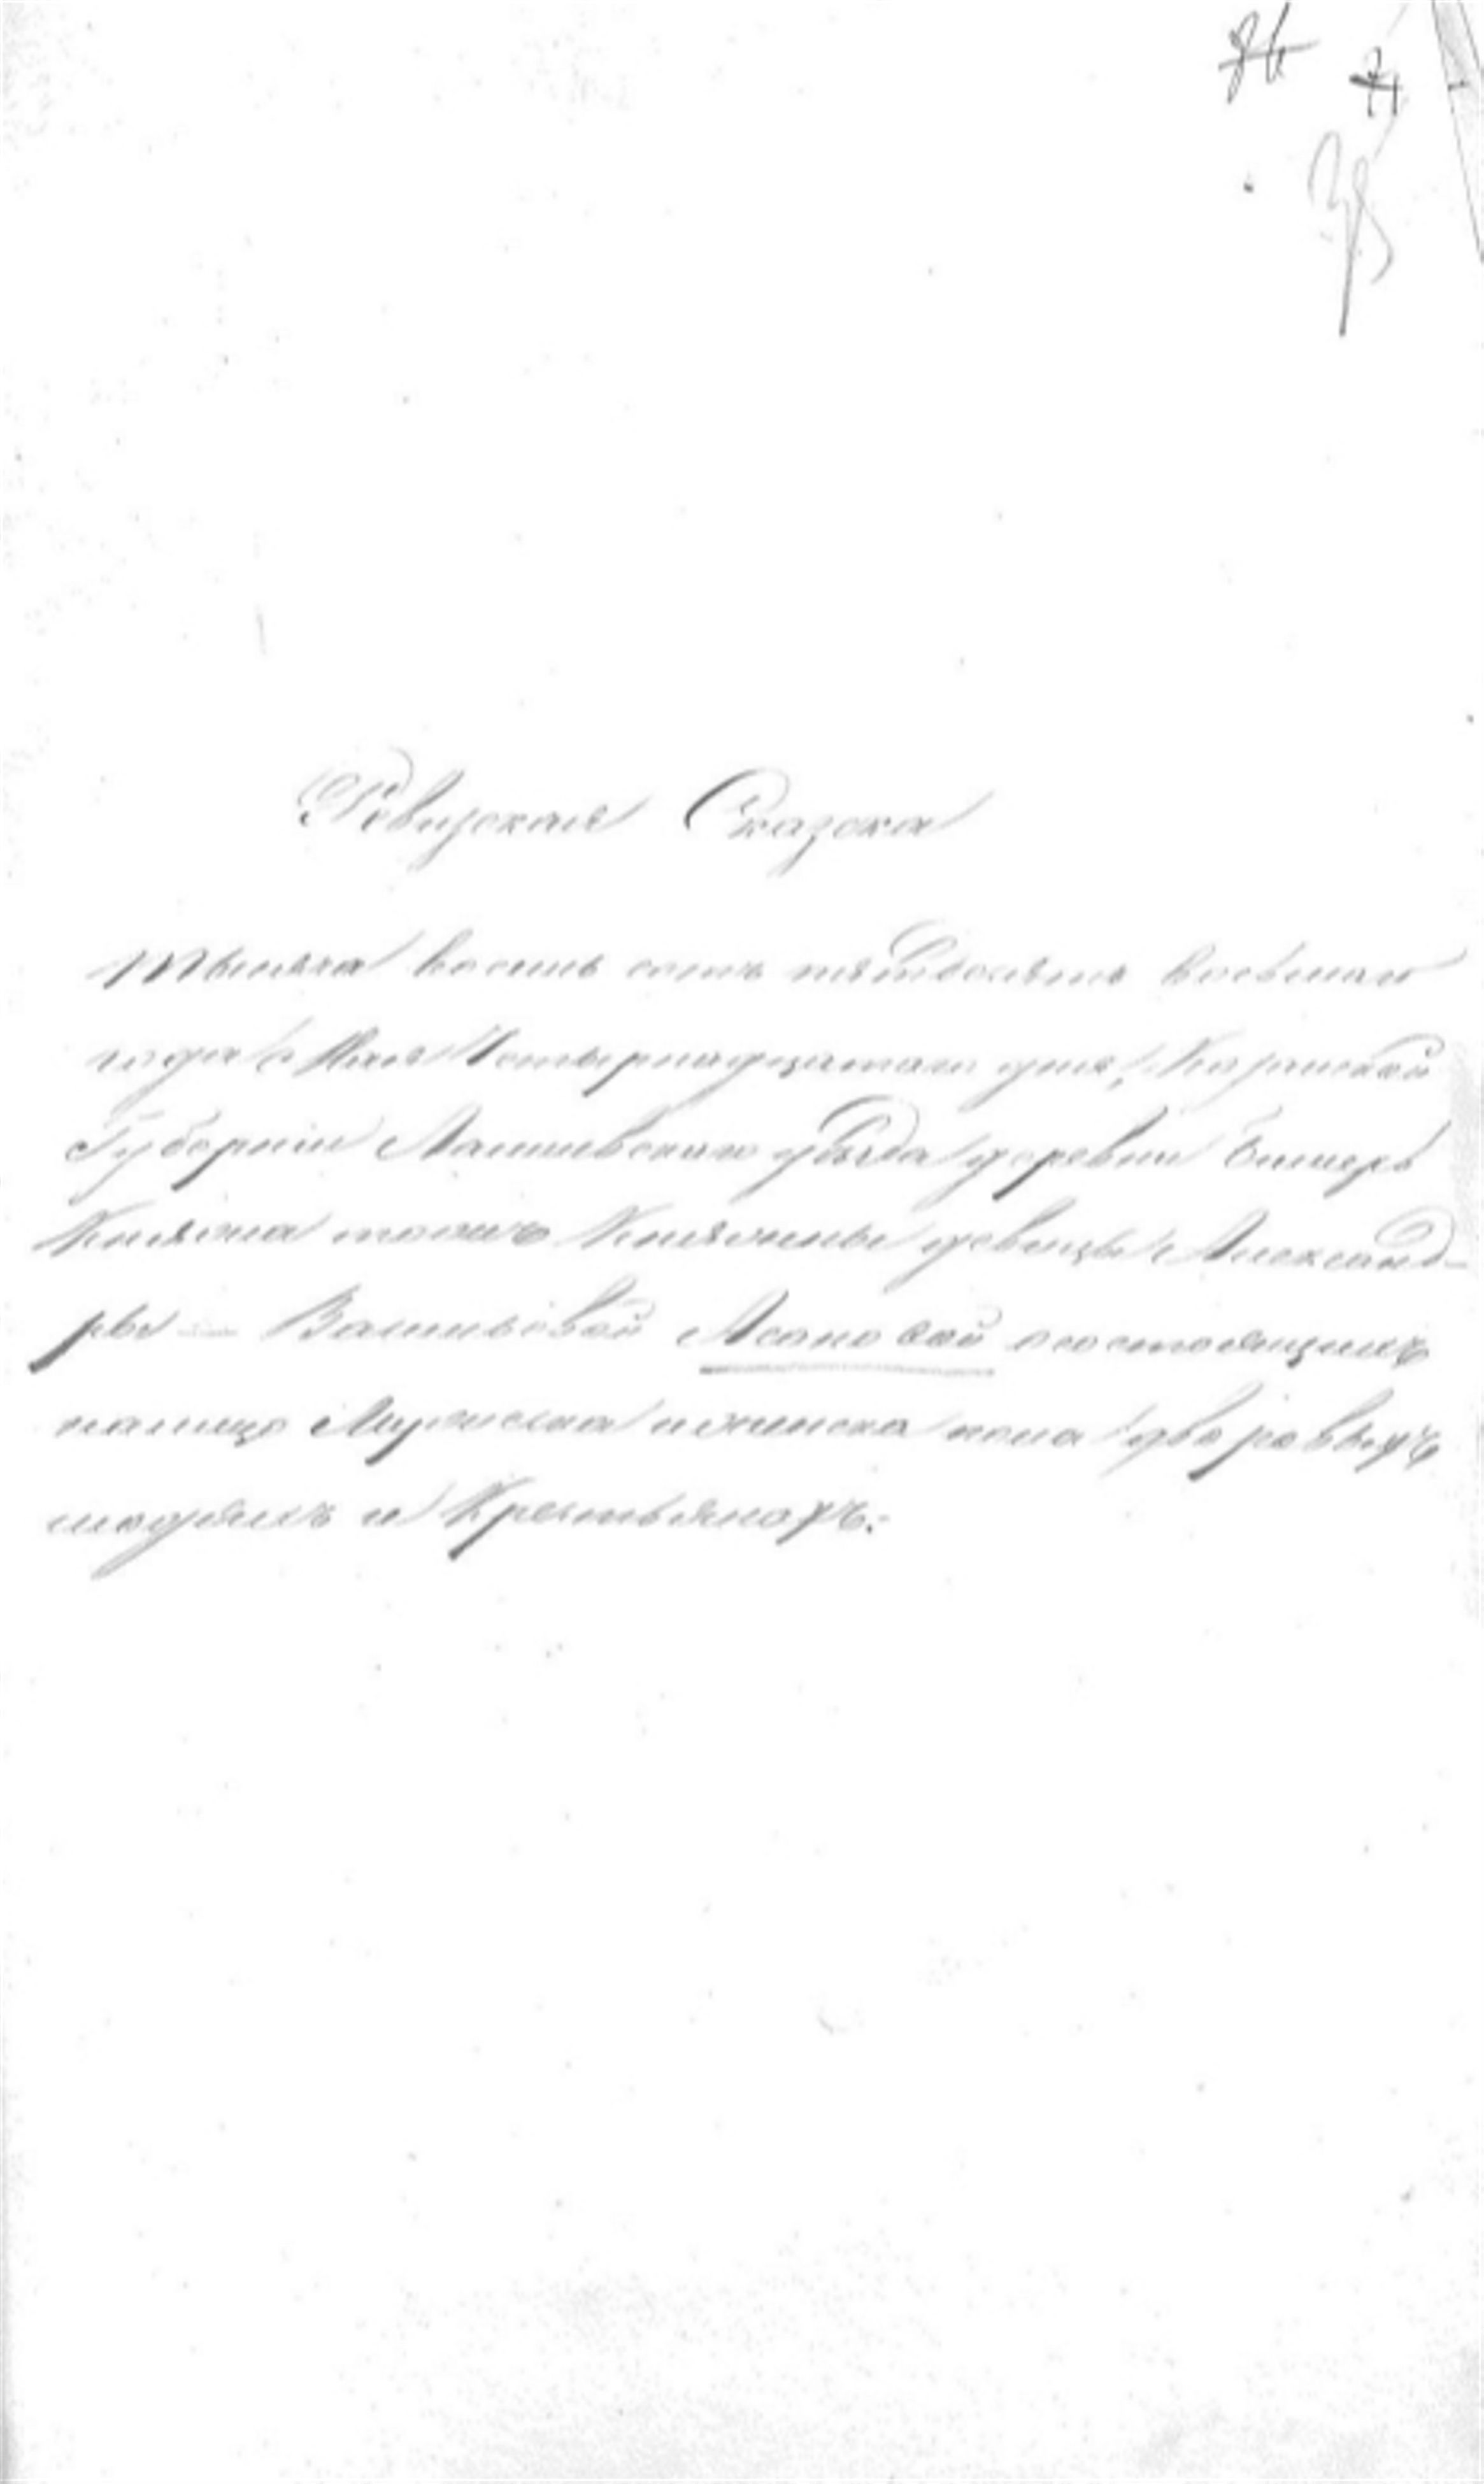 Ревизская Сказка
Тысяча восемь сотъ пятьдесятъ восьмаго
года Мая Четырнадцатаго дня, Казанской
Губерніи Лаишевскаго уѣзда деревни
Княжны девицы Александ-
ры Асановой состоящихъ
налицо Мужеска и женска пола дворовыхъ
людяхъ и Крестьянахъ.